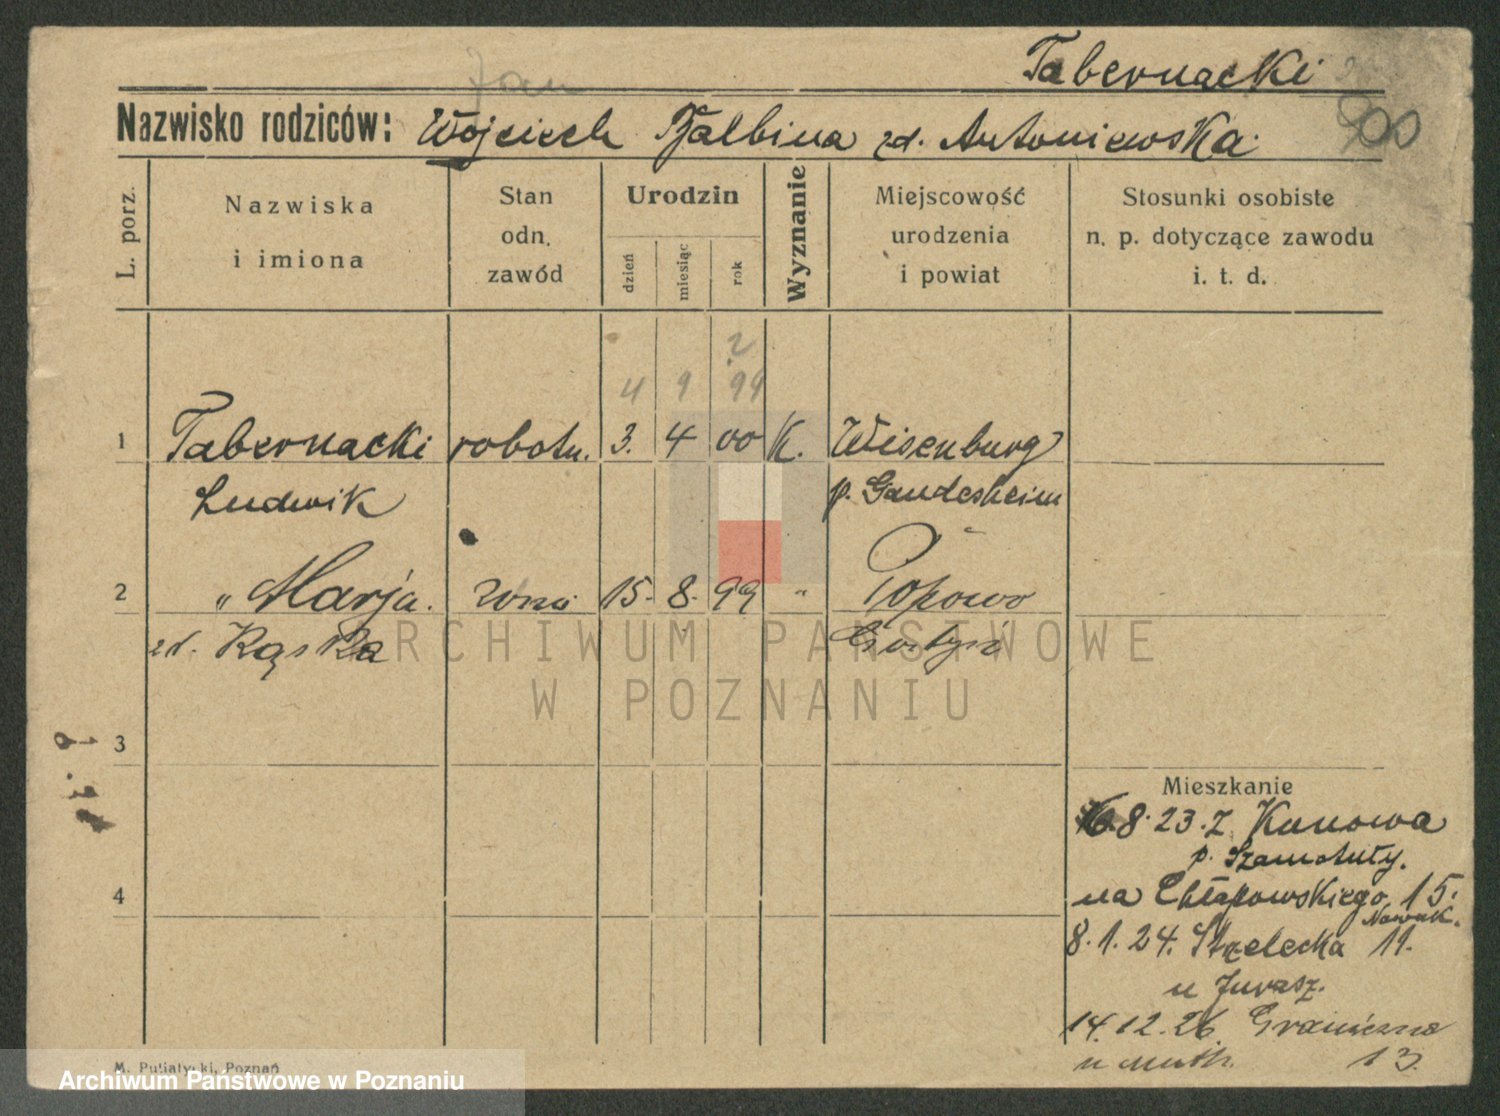 Tabernacki
Jan
Nazwisko rodziców: Wojciech Balbina zd. Antoniewska.
L. porz.
Nazwiska
i imiona
Stan
odn.
zawód
Urodzin
dzień
miesiąc
rok
Wyznanie
Miejscowość
urodzenia
i powiat
Stosunki osobiste
n. p. dotyczące zawodu
i. t. d.
?
4 9 99
1 Tabernacki robotn. 3. 4 00 K. Wisenburg
Ludwik p. Gandesheim
2 " Marja. żona 15. 8. 99 " Popowo
zd. Kąska
ARCHIWUM PAŃSTWOWE
W POZNANIU
3
Mieszkanie
8. 23. z Kunowa
p. Szamotuły.
4
na Chłapowskiego 15.
Nowak.
8. 1. 24. Strzelecka 11.
u Jurasz.
14. 12. 26 Graniczna
u 13.
M. Putiatycki, Poznań
Archiwum Państwowe w Poznaniu